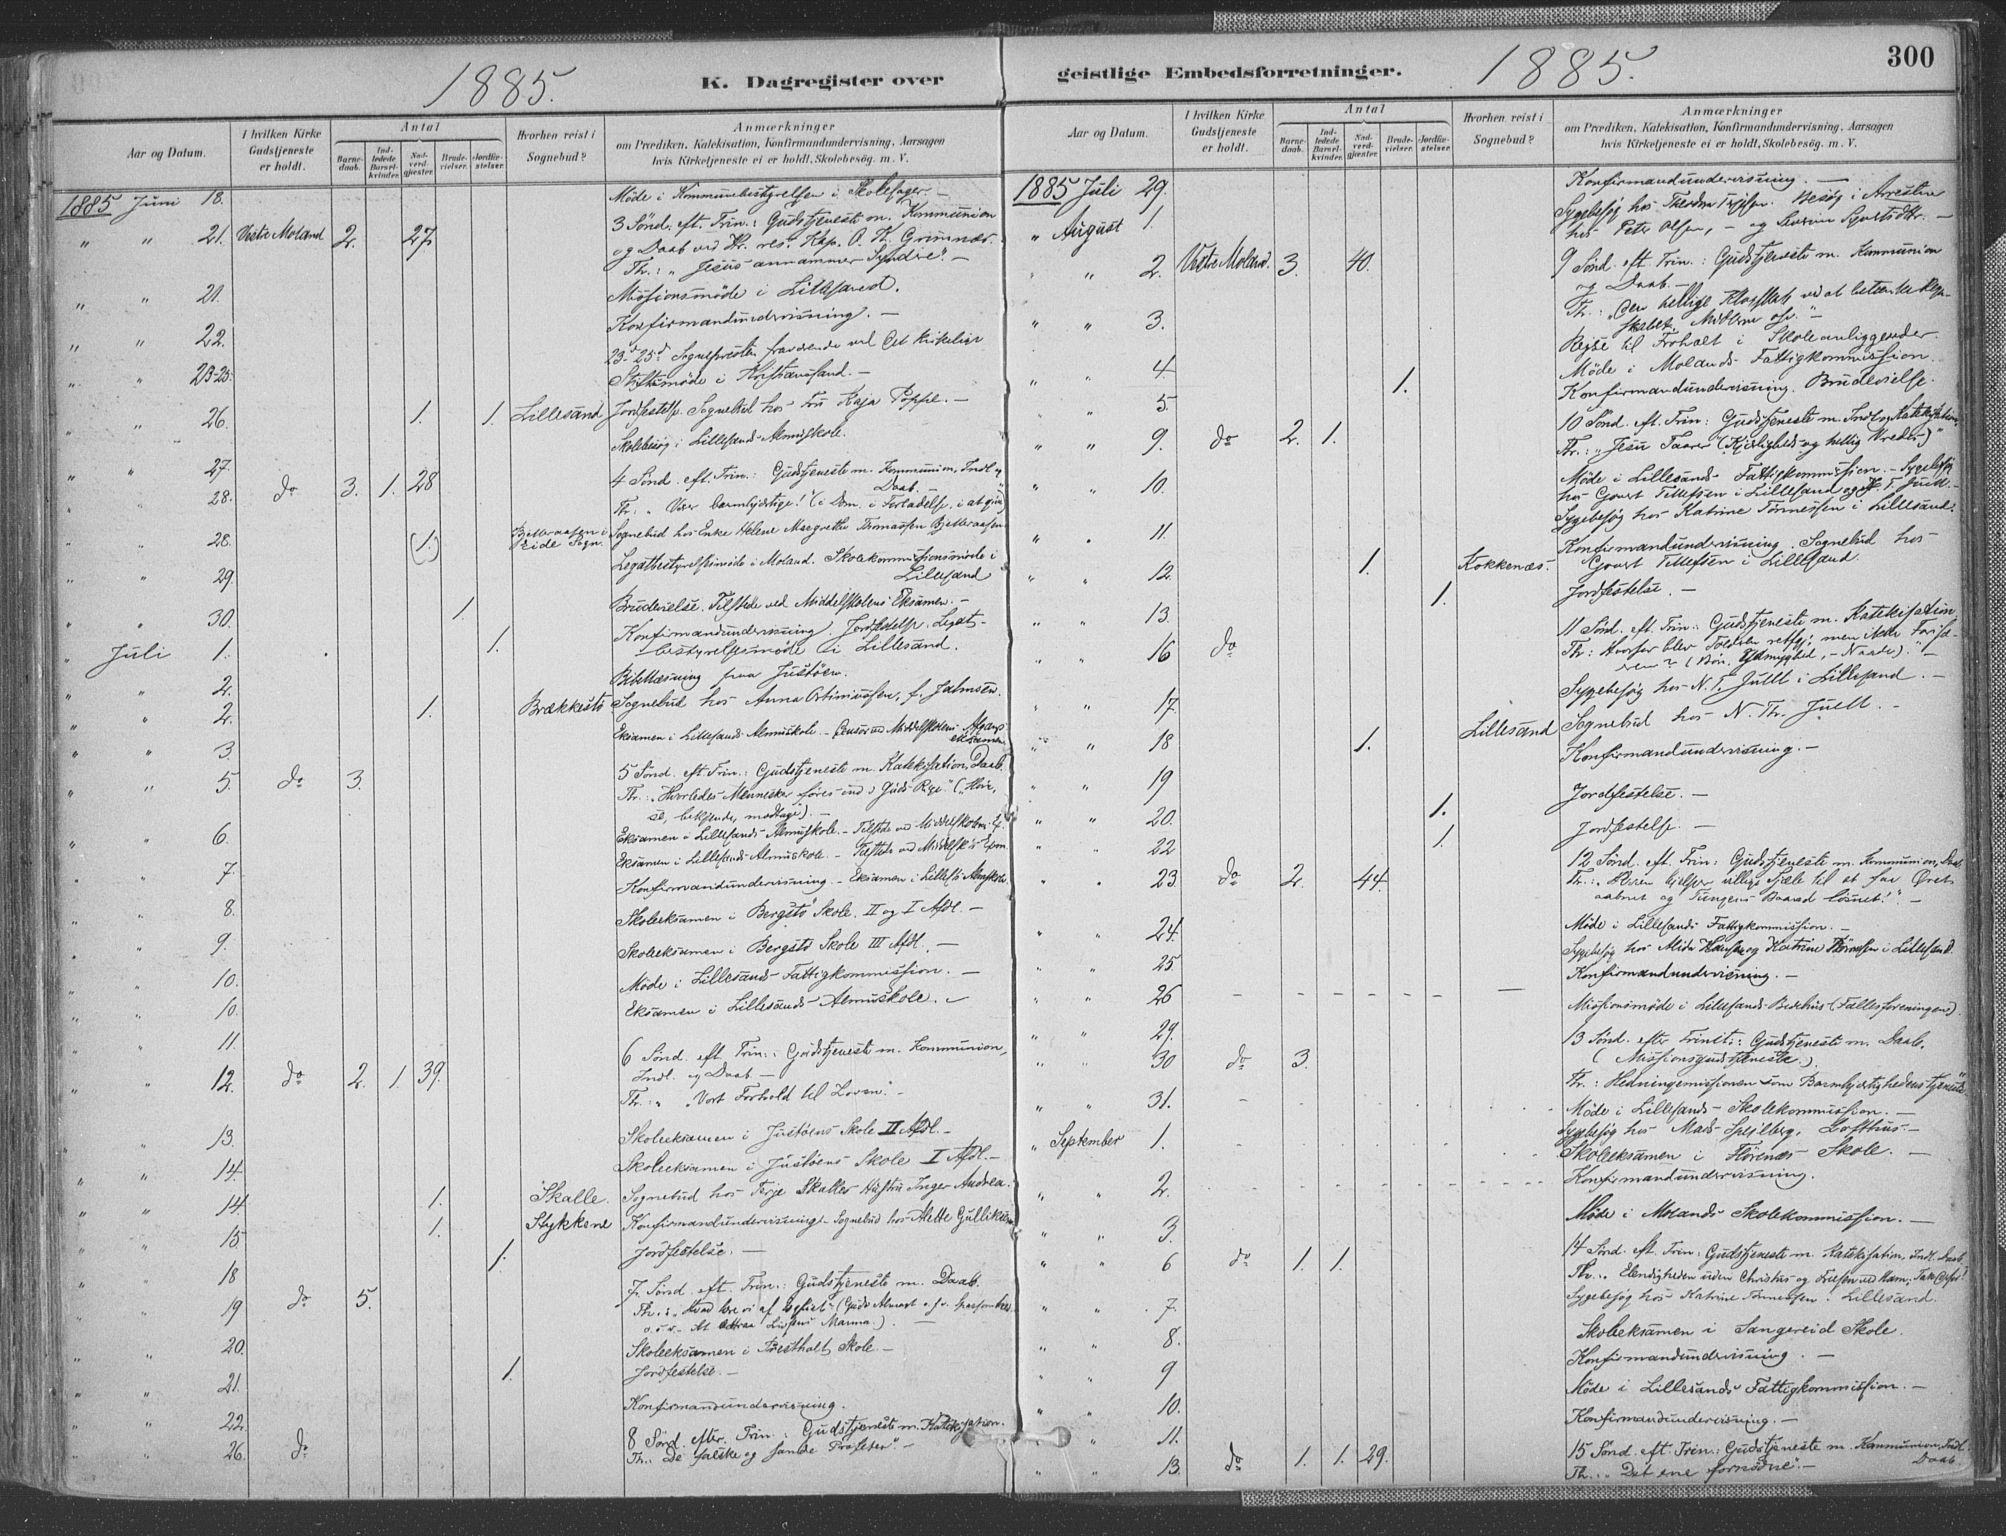 1885.
K. Dagregister over
Aar og Datum.
I hvilken Kirke Gudstjeneste er holdt.
Antal
Barnedaab.
Indledede Barselkvinder.
Nadverdgjester
Brudevielser.
Jordfæstelser
Hvorhen reist i Sognebud?
Anmærkninger
om Prædiken, Katekisation, Konfirmandundervisning, Aarsagen
hvis Kirketjeneste ei er holdt, Skolebesøg. m. V.
1885 Juni 18. Møde i Kommunebestyrelsen i Skolesager. —
" " 21. Vestre Moland 2. 27. 3 Sønd. eft. Trin.: Gudstjeneste m. Kommunion
og Daab ved Hr. res. Kap. O. K. Grimnæs.
Th.: „Jesus annammer Syndre". —
" " 21. Missionsmøde i Lillesand.
" " 22. Konfirmandundervisning. —
" " 23-25. 23d-25d Sognepresten fraværende ved Det kirkelige
Stiftsmøde i Kristiansand. —
" " 26. 1. 1. Lillesand Jordfestelse. Sognebud hos Kaja Poppe. —
" " 27. Skolebesøg i Lillesands Almuskole.
" " 28. do 3. 1. 28 4 Sønd. eft. Trin.: Gudstjeneste m. Kommunion, Indl. og
Daab. —
Th.: „Vær barmhjertige! (i Dom, i Forladelse, i at give)
" " 28. (1.) Sognebud hos Enke Helene Margrethe Thomassen
" " 29. Legatbestyrelsesmøde i Moland. Skolekommissionsmøde i
Lillesand
" " 30. 1. Brudevielse. Tilstede ved Middelskolens Eksamen. —
" Juli 1. 1. Konfirmandundervisning Jordfestelse. Legat-
bestyrelsesmøde i Lillesand.
" " 2. Bibellæsning paa Justøen.
" " 2. 1. Brækkestø Sognebud hos Anna
" " 3. Eksamen i Lillesands Almuskole. — Censor ved Middelskolens Afgangs
eksamen
" " 5. do 3. 5 Sønd. eft. Trin.: Gudstjeneste m. Katekisation, Daab.
Th.: „Hvorledes Mennesker føres ind i Guds Rige" („Høre,
se, bekjende, modtage). —
" " 6. Eksamen i Lillesands Almuskole. — Tilstede ved Middelskolens Ex.
" " 7. Eksamen i Lillesands Almuskole. — Tilstede ved Middelsk's Exm
" " 8. Konfirmandundervisning. — Eksamen i Lilles's Almskole
" " 9. Skoleeksamen i Bergstø Skole. II og I Afdl. —
" " 10. Skoleeksamen i Bergstø Skole III Afdl. —
" " 10. Møde i Lillesands Fattigkommission. —
" " 11. Eksamen i Lillesands Almuskole. —
" " 12. do 2. 1. 39. 6 Sønd. eft. Trin.: Gudstjeneste m. Kommunion,
Indl. og Daab —
Th.: „Vort Forhold til Loven". —
" " 13. Skoleeksamen i Justøens Skole II Afdl. —
" " 14. Skoleeksamen i Justøens Skole I Afdl. —
" " 14. 1. Skalle. Sognebud hos Terje Skalles Hustru Inger Andrea.
" " 15. 1. Stykkene Konfirmandundervisning — Sognebud hos Alette Gulliksen
" " 18 1. Jordfestelse. —
" " 19 do 5. 7. Sønd. eft. Trin.: Gudstjeneste m. Daab.
" " 20. Skoleeksamen i Skole. —
" " 21. 1. Jordfestelse. —
" " 22. Konfirmandundervisning.
" " 26. do 8 Sønd. efter Trin.: Gudstjeneste m. Katekisation.
Th.: De falske og sande Profeter" —
geistlige Embedsforretninger.
1885.
300
Aar og Datum.
I hvilken Kirke Gudstjeneste er holdt.
Antal
Barnedaab.
Indledede Barselkvinder.
Nadverdgjester
Brudevielser.
Jordfæstelser
Hvorhen reist i Sognebud?
Anmærkninger
om Prædiken, Katekisation, Konfirmandundervisning, Aarsagen
hvis Kirketjeneste ei er holdt, Skolebesøg. m. V.
1885 Juli 29. Konfirmandundervisning. —
" August 1. Sygebesøg hos Besøg i Arresten
hos Peter Olsen, — og
" " 2. Vestre Moland. 3. 40. 9 Sønd. eft. Trin.: Gudstjeneste m. Kommunion
og Daab. —
Th.: „Den hellige Klogskab ved at
" " 3. Rejse til Froholt i Skoleanliggender.
" " 4. Møde i Molands Fattigkommission.
" " 5. 1. Konfirmandundervisning. Brudevielse.
" " 9. do 2. 1. 10 Sønd. eft. Trin.: Gudstjeneste m. Indl. og Katekisation,
Th.: „Jesu Taarer (Kjærligheds og hellig Vredes)"
" " 10. Møde i Lillesands Fattigkommission. — Sygebesøg
hos Govert Tellefsen i Lillesand og
" " 11. Sygebesøg hos Katrine Tønnessen i Lillesand.
" " 12. 1. Kokkenæs. Konfirmandundervisning. Sognebud hos
Govert Tellefsen i Lillesand.
" " 13. 1. Jordfestelse. —
" " 16 do 11 Sønd. eft. Trin.: Gudstjeneste m. Katekisation
Th.: Hvorfor blev Tolderen retfg., men ikke Farisæ-
eren? (Bøn, Ydmyghed, — Naade). " —
" " 17. Sygebesøg hos N. T. Juell i Lillesand. —
" " 18 1. Lillesand Sognebud hos N. Th. Juell. —
" " 19 Konfirmandundervisning. —
" " 20. 1. Jordfestelse. —
" " 22 1. Jordfestelse. —
" " 23. do 2. 44. 12 Sønd. eft. Trin: Gudstjeneste m. Kommunion, Daab
Th.: „Herren hjelper villige Sjæle til at faa Øret
aabnet og Tungens Baand løsnet!". —
" " 24. Møde i Lillesands Fattigkommission. —
" " 25. Sygebesøg hos og Katrine Tønnessen i Lillesand.
" " 26 Konfirmandundervisning. —
" " 29. Missionsmøde i Lillesands Bedehus (Fællesforeningens).
" " 30 do 3. 13 Sønd. efter Trinit.: Gudstjeneste m. Daab.
(Missionsgudstjeneste.)
Th.: Hedningemissionen som Barmhjertighedens tjeneste"
" " 31. Møde i Lillesands Skolekommission. —
" September 1. Sygebesøg hos Mads Spejlberg,
Skoleeksamen i Skole. —
" " 2. Konfirmandundervisning.
" " 3. Møde i Molands Skolekommission. —
" " 6 do 1. 1. 14 Sønd. eft. Trin.: Gudstjeneste m. Katekisation, Indl. Daab
Th.: „Elendigheden uden Christus og Frelsen ved Ham,
" " 7. Sygebesøg hos Katrine Tønnessen. Lillesand.
" " 8. Skoleeksamen i Sangereid Skole.
" " 9 Konfirmandundervisning. —
" " 10. Møde i Lillesands Fattigkommission. —
" " 11. Konfirmandundervisning. —
" " 13. do 1. 1. 29. 15 Sønd. eft. Trin.: Gudstjeneste m. Kommunion, Indl.
Daab.
Th.: „Det ene fornødne". —